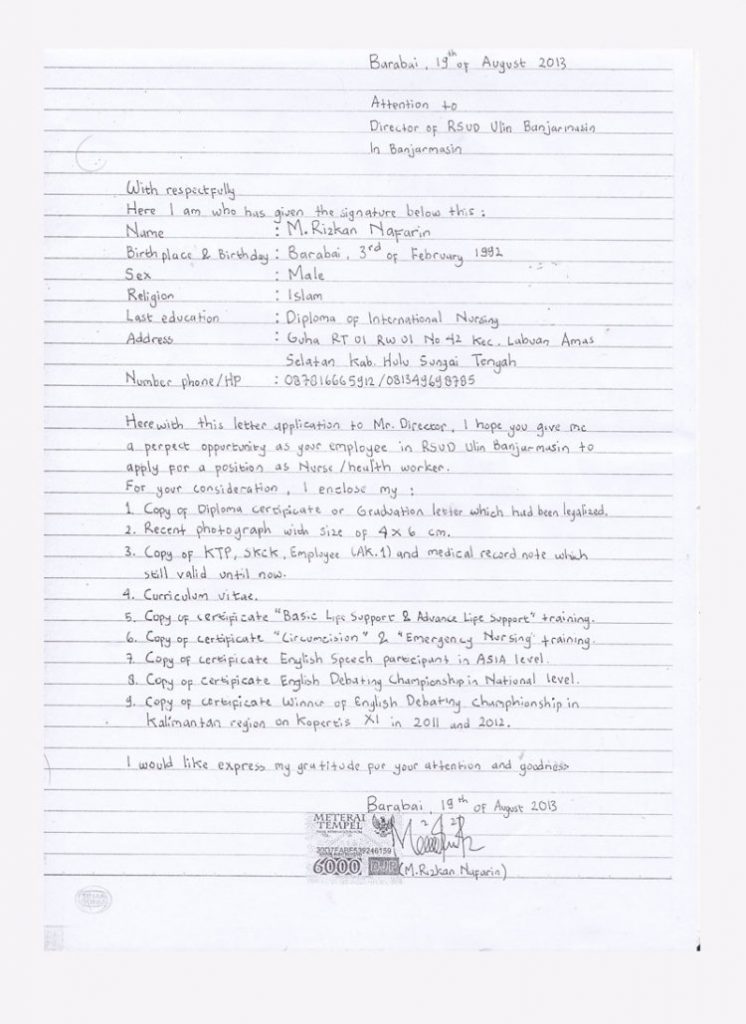 Barabai, 19th of August 2013
Attention to
Director of RSUD Ulin Banjarmasin
In Banjarmasin
With respectfully
Here I am who has given the signature below this :
Name : M. Rizkan Nafarin
Birth place & Birthday : Barabai, 3rd of February 1992
Sex : Male
Religion : Islam
Last education : Diploma of International Nursing
Address : Guha RT 01 RW 01 No 42 Kec. Labuan Amas
Selatan Kab. Hulu Sungai Tengah
Number phone/HP : 087816665912/081349698785
Herewith this letter application to Mr. Director, I hope you give me
a perpect opportunity as your employee in RSUD Ulin Banjarmasin to
apply for a position as Nurse/health worker.
For your consideration, I enclose my :
1. Copy of Diploma certificate or Graduation letter which had been legalized.
2. Recent photograph with size of 4 x 6 cm.
3. Copy of KTP, SKCK, Employee (AK.1) and medical record note which
still valid until now.
4. Curriculum vitae.
5. Copy of certificate "Basic Life Support & Advance Life Support" training.
6. Copy of certificate "Circumcision" & "Emergency Nursing" training.
7. Copy of certificate English Speech participant in ASIA level.
8. Copy of certificate English Debating Championship in National level.
9. Copy of certificate Winner of English Debating Champhionship in
Kalimantan region on Kopertis XI in 2011 and 2012.
I would like express my gratitude for your attention and goodness
Barabai, 19th of August 2013
METERAI
TEMPEL
6000 DJP
(M. Rizkan Nafarin)